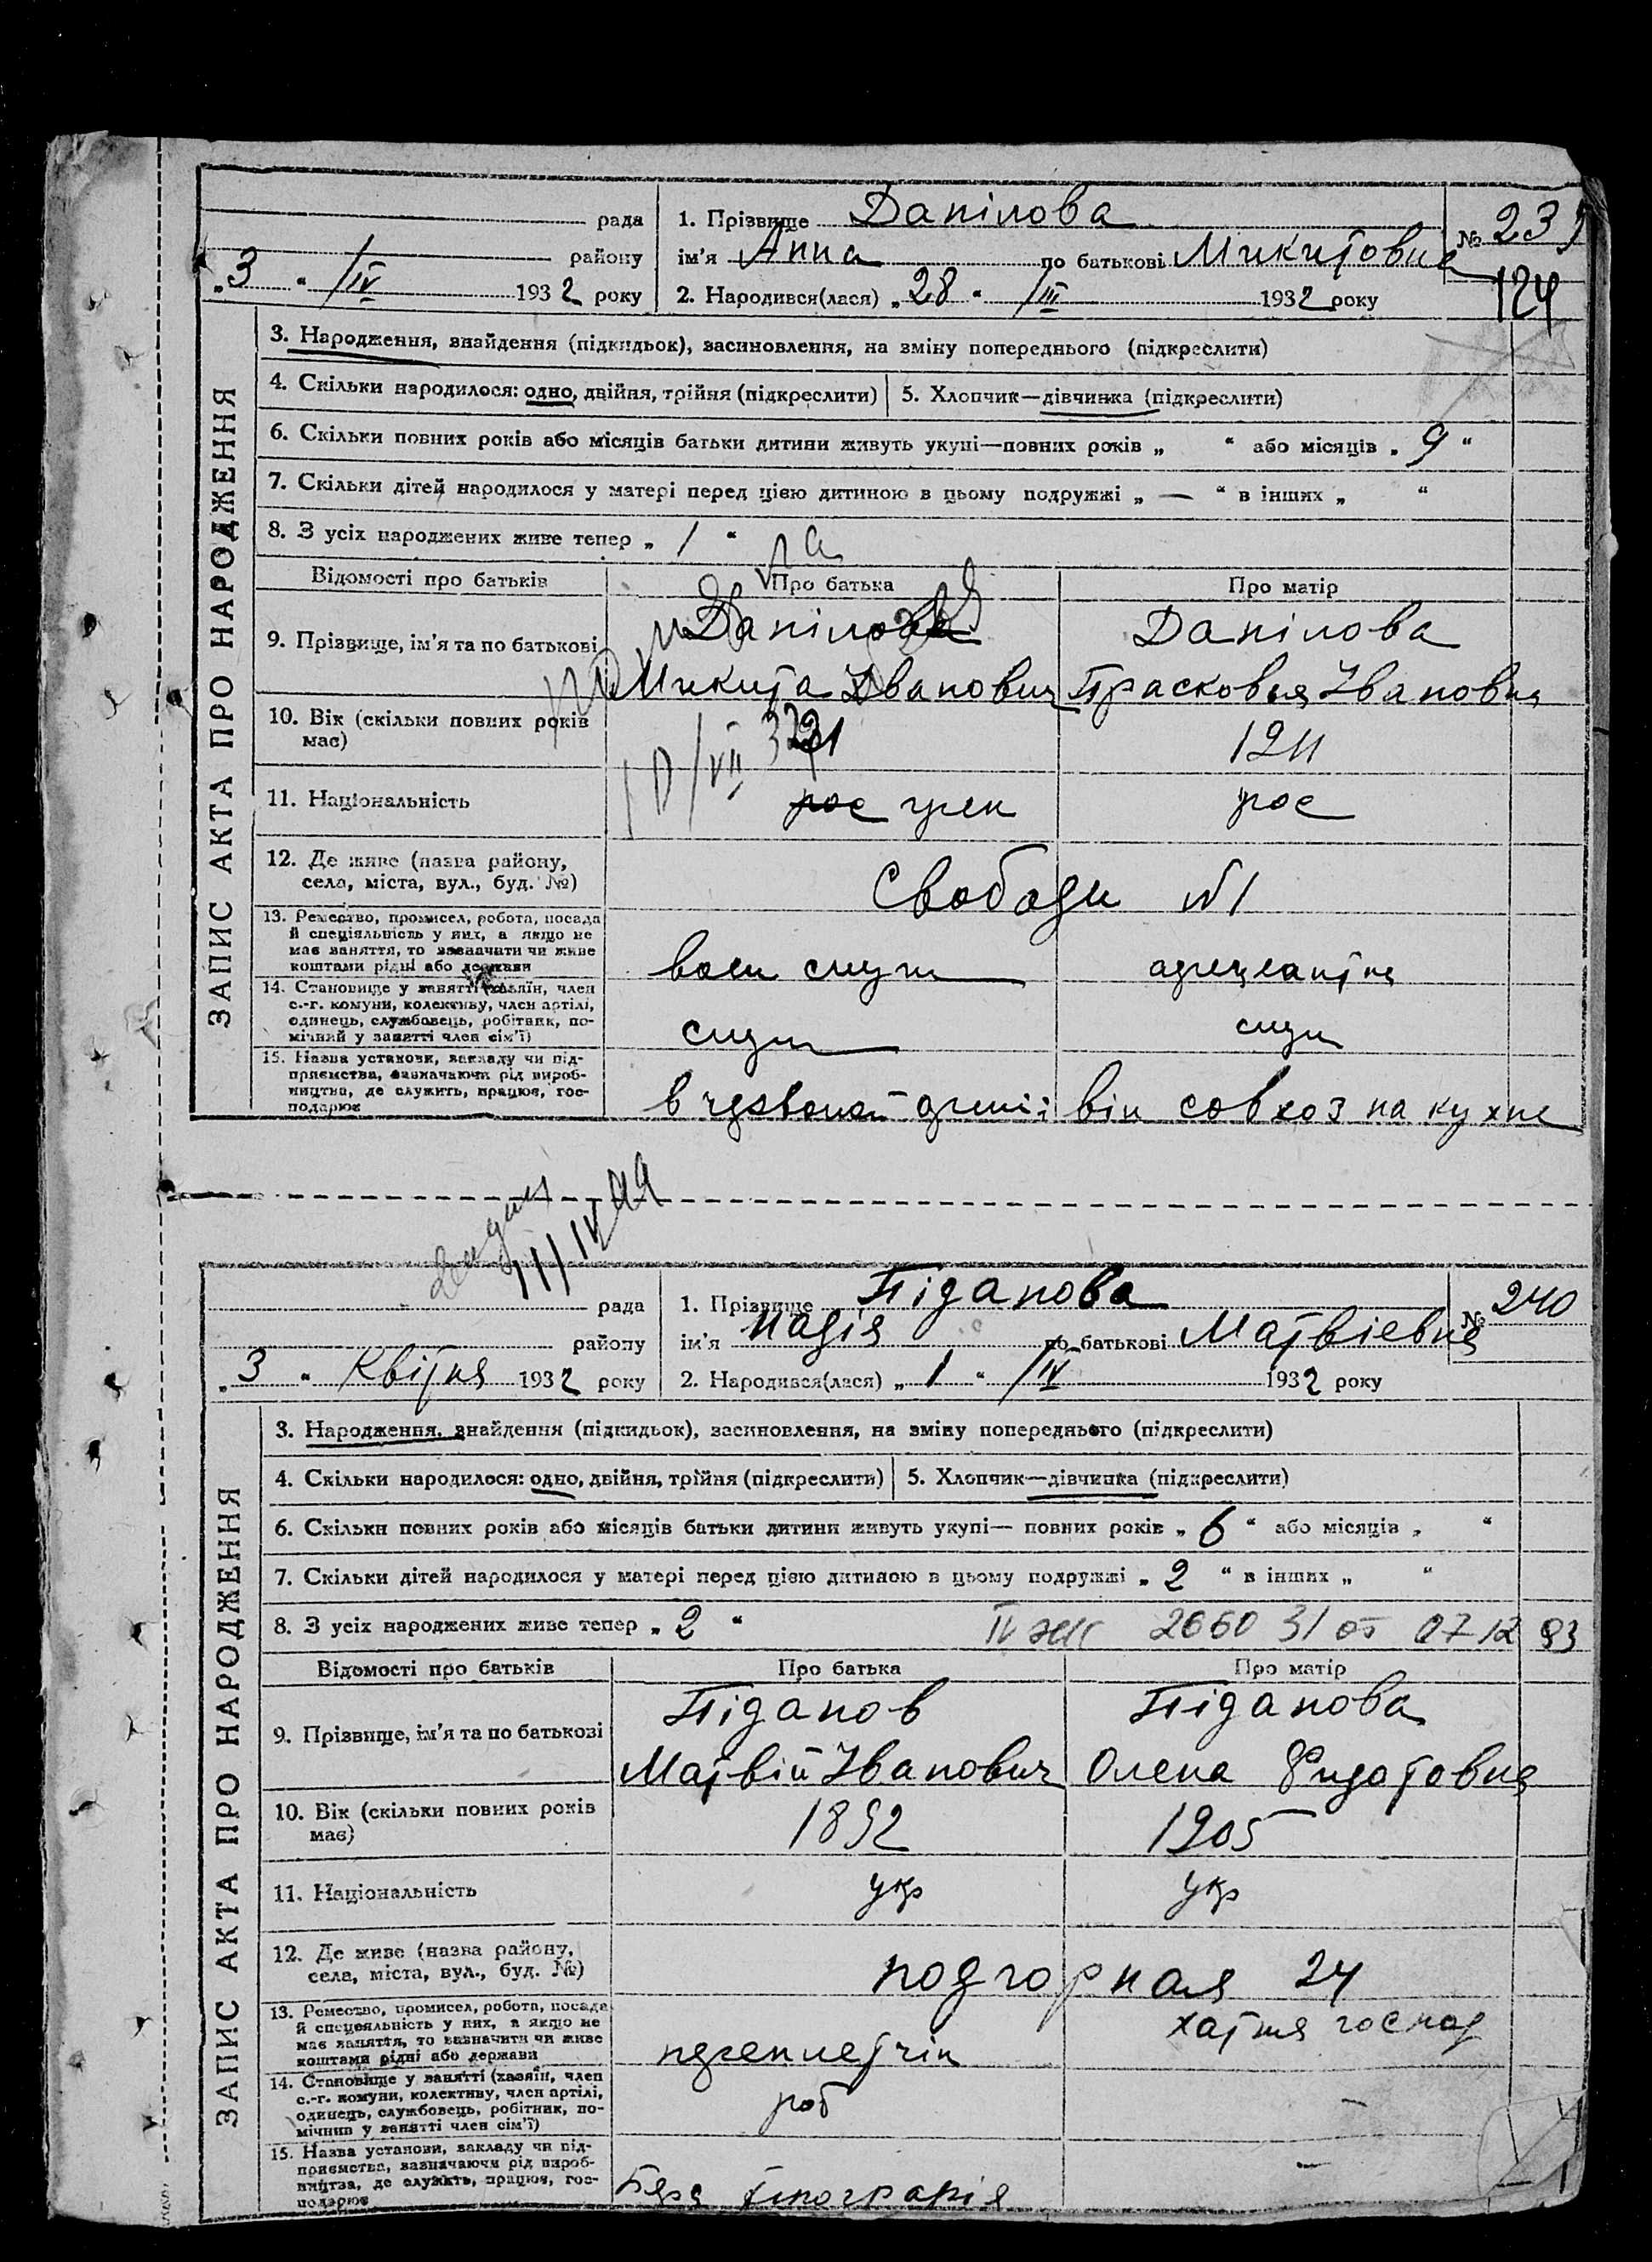 рада
району
„3“ /IV 1932 року
1. Прізвище Данілова
ім'я Анна по батькові Микитовна
2. Народився(лася) „28“ /III 1932 року
№ 239
124
ЗАПИС АКТА ПРО НАРОДЖЕННЯ
3. Народження, знайдення (підкидьок), засиновлення, на зміну попереднього (підкреслити)
4. Скільки народилося: одно, двійня, трійня (підкреслити)
5. Хлопчик—дівчинка (підкреслити)
6. Скільки повних років або місяців батьки дитини живуть укупі—повних років „ “ або місяців „9“
7. Скільки дітей народилося у матері перед цією дитиною в цьому подружжі „—“ в інших „ “
8. З усіх народжених живе тепер „1“
Відомості про батьків
Про батька
Про матір
9. Прізвище, ім'я та по батькові
Данілова
Микита Іванович
Данілова
Прасковья Ивановна
10. Вік (скільки повних років має)
1911
11. Національність
рос грек
рос
12. Де живе (назва району,
села, міста, вул., буд. №)
Свободи №1
13. Ремество, промисел, робота, посада
й спеціяльність у них, а якщо не
має заняття, то зазначити чи живе
коштами рідні або держави
14. Становище у занятті (хазяїн, член
с.-г. комуни, колективу, член артілі,
одинець, службовець, робітник, по-
мічний у занятті член сім'ї)
служ
служ
15. Назва установи, закладу чи під-
приємства, зазначаючи рід вироб-
ництва, де служить, працює, гос-
подарює
він совхоз на кухне
рада
району
„3“ Квітня 1932 року
1. Прізвище Піданова
ім'я Надія по батькові Матвіевна
2. Народився(лася) „1“ /IV 1932 року
№ 240
ЗАПИС АКТА ПРО НАРОДЖЕННЯ
3. Народження, знайдення (підкидьок), засиновлення, на зміну попереднього (підкреслити)
4. Скільки народилося: одно, двійня, трійня (підкреслити)
5. Хлопчик—дівчинка (підкреслити)
6. Скільки повних років або місяців батьки дитини живуть укупі— повних років „6“ або місяців „ “
7. Скільки дітей народилося у матері перед цією дитиною в цьому подружжі „2“ в інших „ “
8. З усіх народжених живе тепер „2“
Відомості про батьків
Про батька
Про матір
9. Прізвище, ім'я та по батькові
Піданов
Матвій Іванович
Піданова
Олена Фидотовна
10. Вік (скільки повних років
має)
1892
1905
11. Національність
укр
укр
12. Де живе (назва району,
села, міста, вул., буд. №)
подгорная 24
13. Ремество, промисел, робота, посада
й спецеяльність у них, а якщо не
має заняття, то зазначити чи живе
коштами рідні або держави
хатня господ
14. Становище у занятті (хазяїн, член
с.-г. комуни, колективу, член артілі,
одинець, службовець, робітник, по-
мічний у занятті член сім'ї)
роб
—
15. Назва установи, закладу чи під-
приємства, зазначаючи рід вироб-
ництва, де служить, працює, гос-
подарює
—